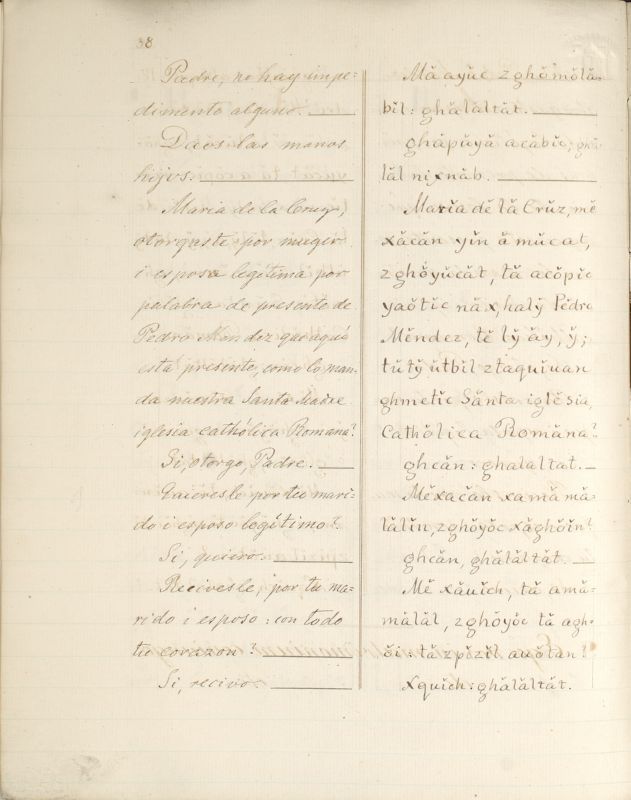 38
Padre, no hay impe=
dimento alguno.
Daos las manos
hijos.
Maria de la Cruz,
otorgaste por muger
i esposa legítima por
palabra de presente de
Pedro Mendez que aquí
está presente, como lo man-
da nuestra Santa Madre
iglesia cathólica Romana?
Si, otorgo, Padre.
Quieresle por tu mari=
do i esposo legítimo?
Si, quiero.
Recivesle, por tu ma=
rido i esposo: con todo
tu corazon?
Si, recivo.
Mă ayŭc zghŏmŏlă=
bĭl: ghălăltăt.
ghăpŭyă acăbĭc,
lăl nixnăb.
Marĭa dĕ lă Crŭz, mĕ
xăcăn yĭn ă mŭcat,
zghŏyŭcăt, tă acŏpĭc
yaŏtĭc nă x,halў Pĕdro
Mĕndez, tĕ lў ăy, ў;
tŭtў ŭtbĭl ztaquĭuan
ghmetĭc Sănta iglĕsia,
Cathŏlica Romăna?
ghcăn: ghalaltat.
Mĕxacăn xamă mă=
lălĭn, zghŏyŏc xăghŏĭn?
ghcăn, ghălăltăt.
Mĕ xăuĭch, tă amă=
mălăl, zghŏyŏc tă agh=
ŏi: tă zpĭzĭl auŏtan?
Xquĭch: ghălăltăt.